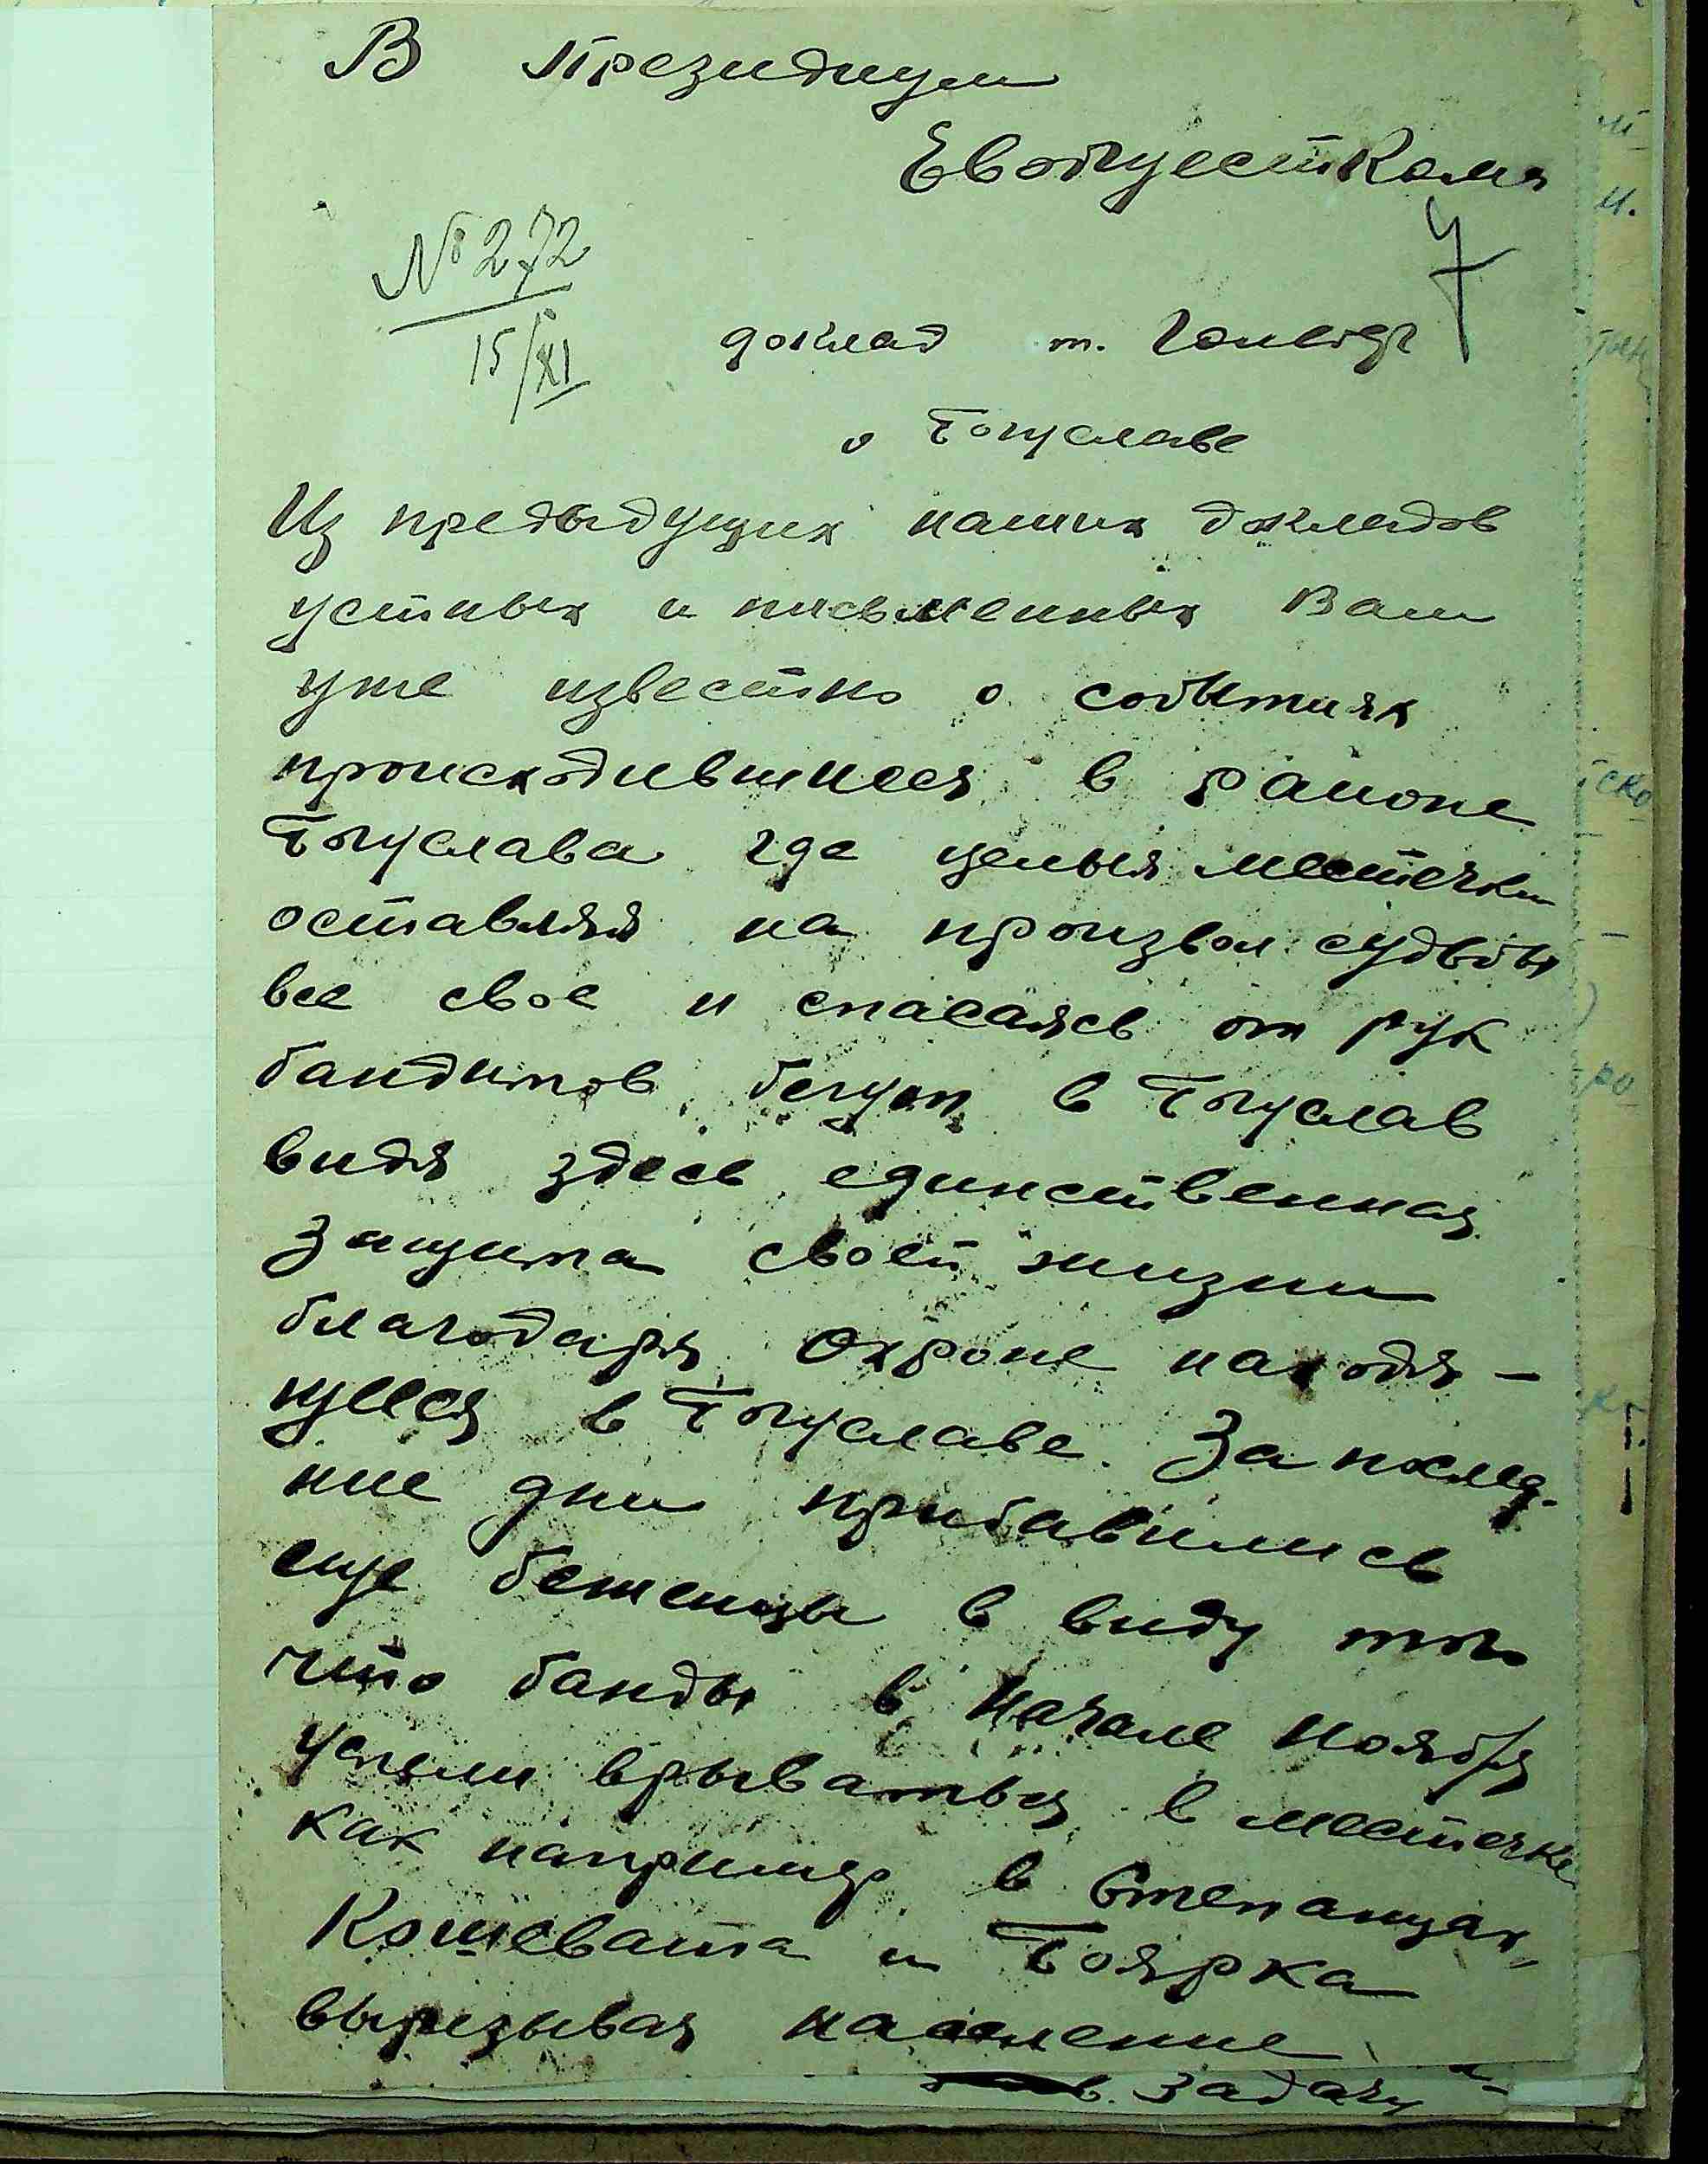 В Президиум
Евобщесткома
7
№ 272
15/XI
доклад т.
о Богуславе
Из предыдущих наших докладов
устных и письменных Вам
уже известно о событиях
происходившиеся в районе
Богуслава где целыя местечки
оставляя на произвол судьбы
все свое и спасаясь от рук
бандитов бегут в Богуслав
видя здесь единственная
защита своей жизни
благодаря охроне находя-
щееся в Богуславе. За послед-
ние дни прибавились
еще беженцы в виду того
что банды в начале ноября
успели врываться в местечке
как например в Степанцах,
Кошевата и Боярка
вырезывая население
задачу